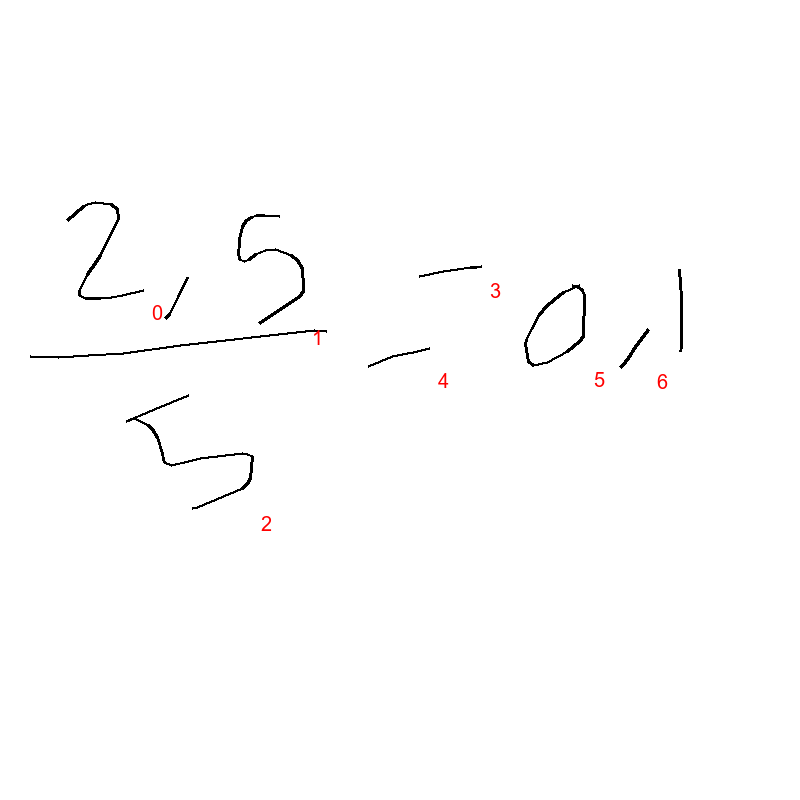 2,5
5
= 0,1
0 1 2 3 4 5 6